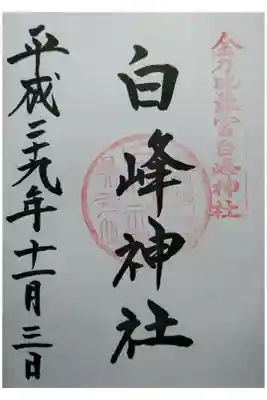 金刀比羅宮白峰神社
白峰神社
平成二十九年十一月三日